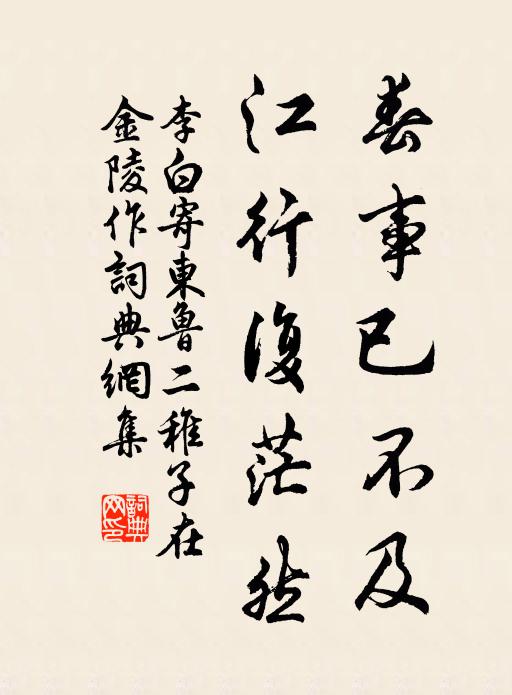 春事已不及
江行復茫然
李白寄東魯二稚子在
金陵作詞典網集
詞典
网印